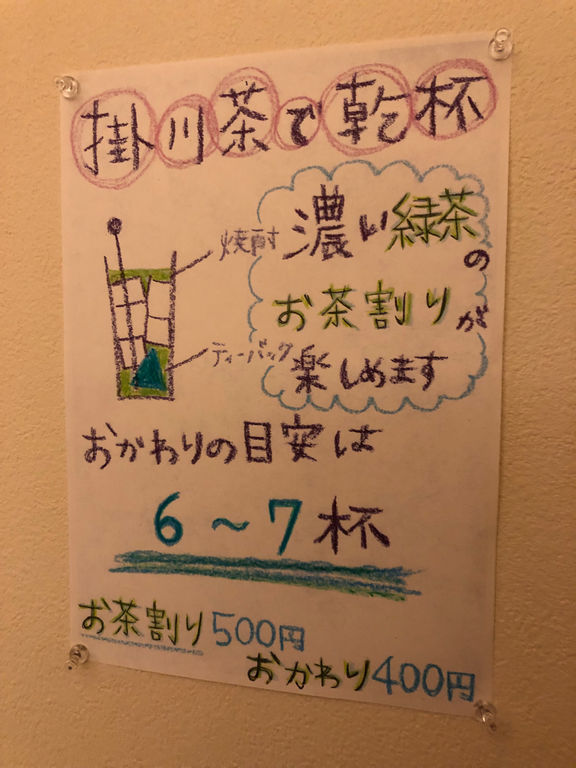 掛川茶で乾杯
濃い緑茶の
お茶割りが
楽しめます
焼酎
ティーバック
おかわりの目安は
6～7杯
お茶割り500円
おかわり400円